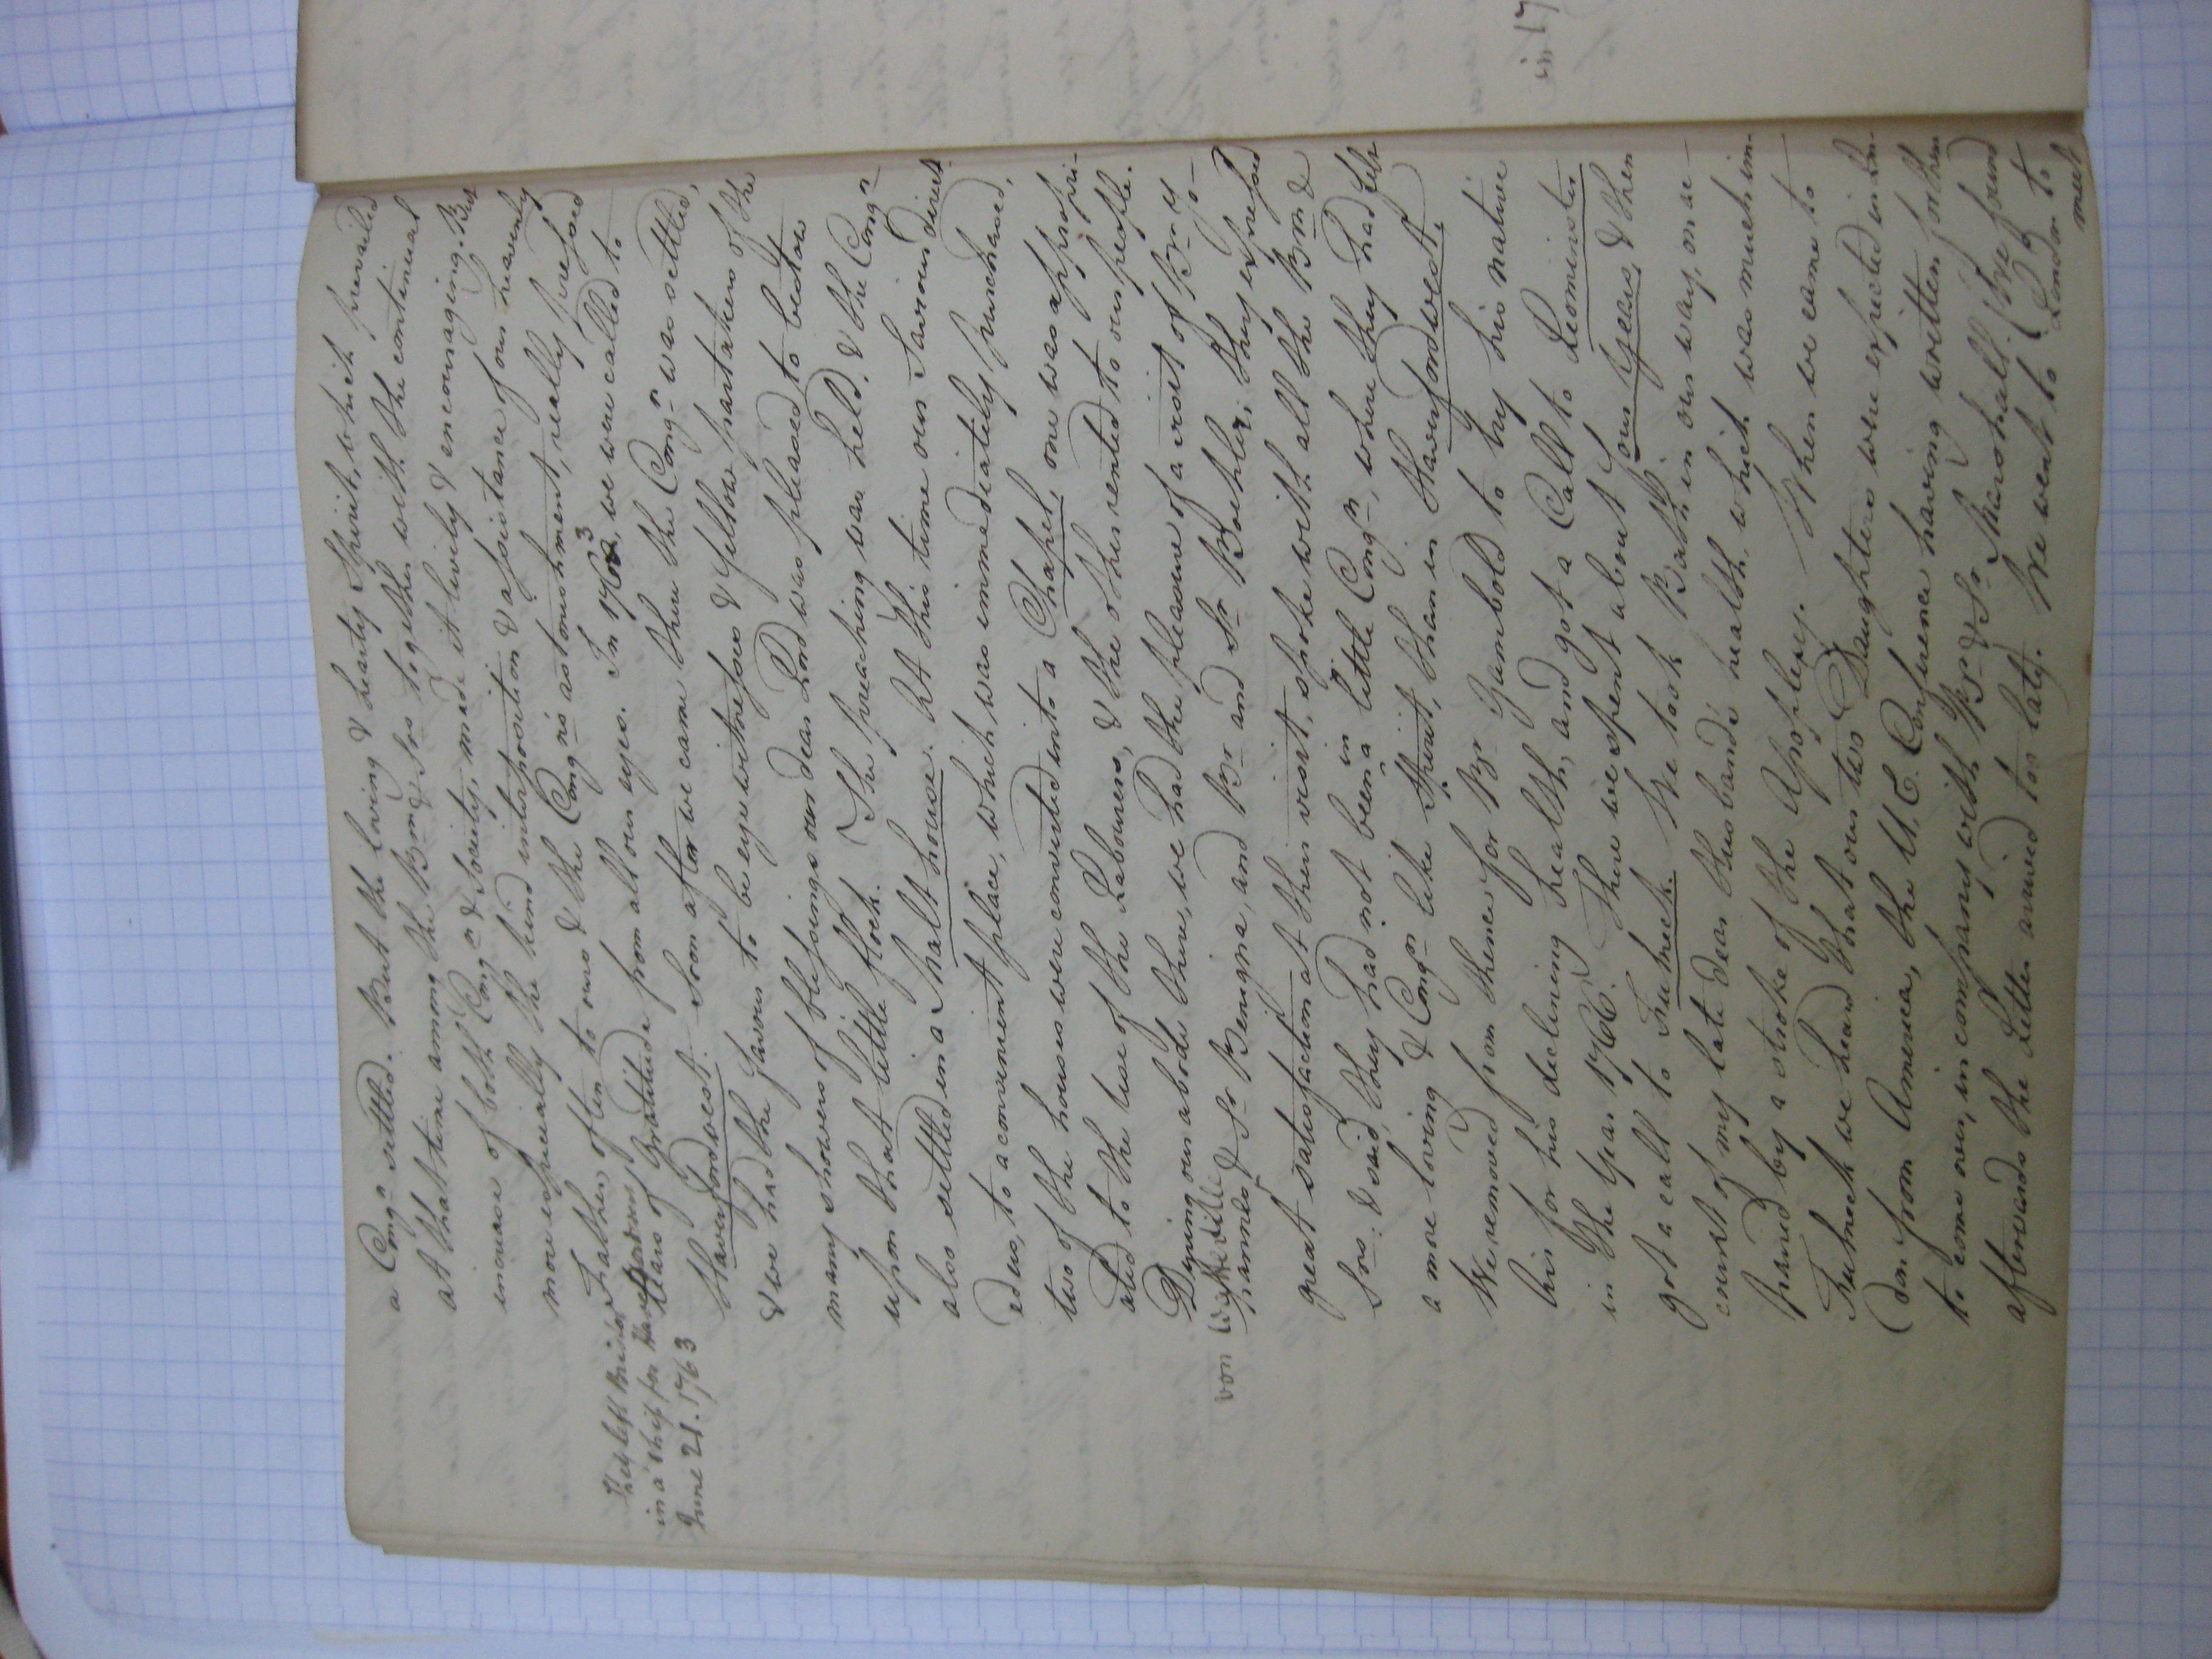 a Congn settled. But the loving & hearty Spirit, which prevailed
at that time among the Brn & Srs together with the continual
increase of both Congn & Society, made it lively & encouraging. But
more especially the kind interposition & assistance of our heavenly
Father, often to ours & the Congn's astonishment, really pressed
They left Bristol
in a ship for Haverfordwest
June 21. 1763
tears of gratitude from all our eyes. In 1763, we were called to
Haverfordwest. Soon after we came there the Congn was settled,
& we had the favour to be eye witnesses & fellow partakers of the
many showers of blessings our dear Lord was pleased to bestow
upon that little flock. The preaching was held, & the Congn
also settled in a Malt house. At this time our Saviour direct-
ed us, to a convenient place, which was immediately purchased,
two of the houses were converted into a Chapel, one was appropri-
ated to the use of the Labourers, & the other rented to our people.
During our abode there, we had the pleasure of a visit of Br Jo-
von Watteville
hannes & Sr Benigna, and Br and Sr Boehler; they expressed
great satisfaction at their visit, spoke with all the Brn &
Srs: & said, they had not been in a little Congn, where they had felt
a more loving & Congn like Spirit, than in Haverfordwest.
We removed from thence for Br Gambold to try his native
Air for his declining health, and got a Call to Leominster
in the Year 1766. There we spent about four Years, & then
got a call to Fulneck. We took Bath in our way, on ac-
count of my late dear Husband's health, which was much im-
paired by a stroke of the Apoplexy. When we came to
Fulneck we heard that our two Daughters were expected in Lon-
don from America, the U. E. Conference having written for them
to come over, in company with Br & Sr Marshall. (We found
afterwards the Letter arrived too late). We went to London to
meet
in 17